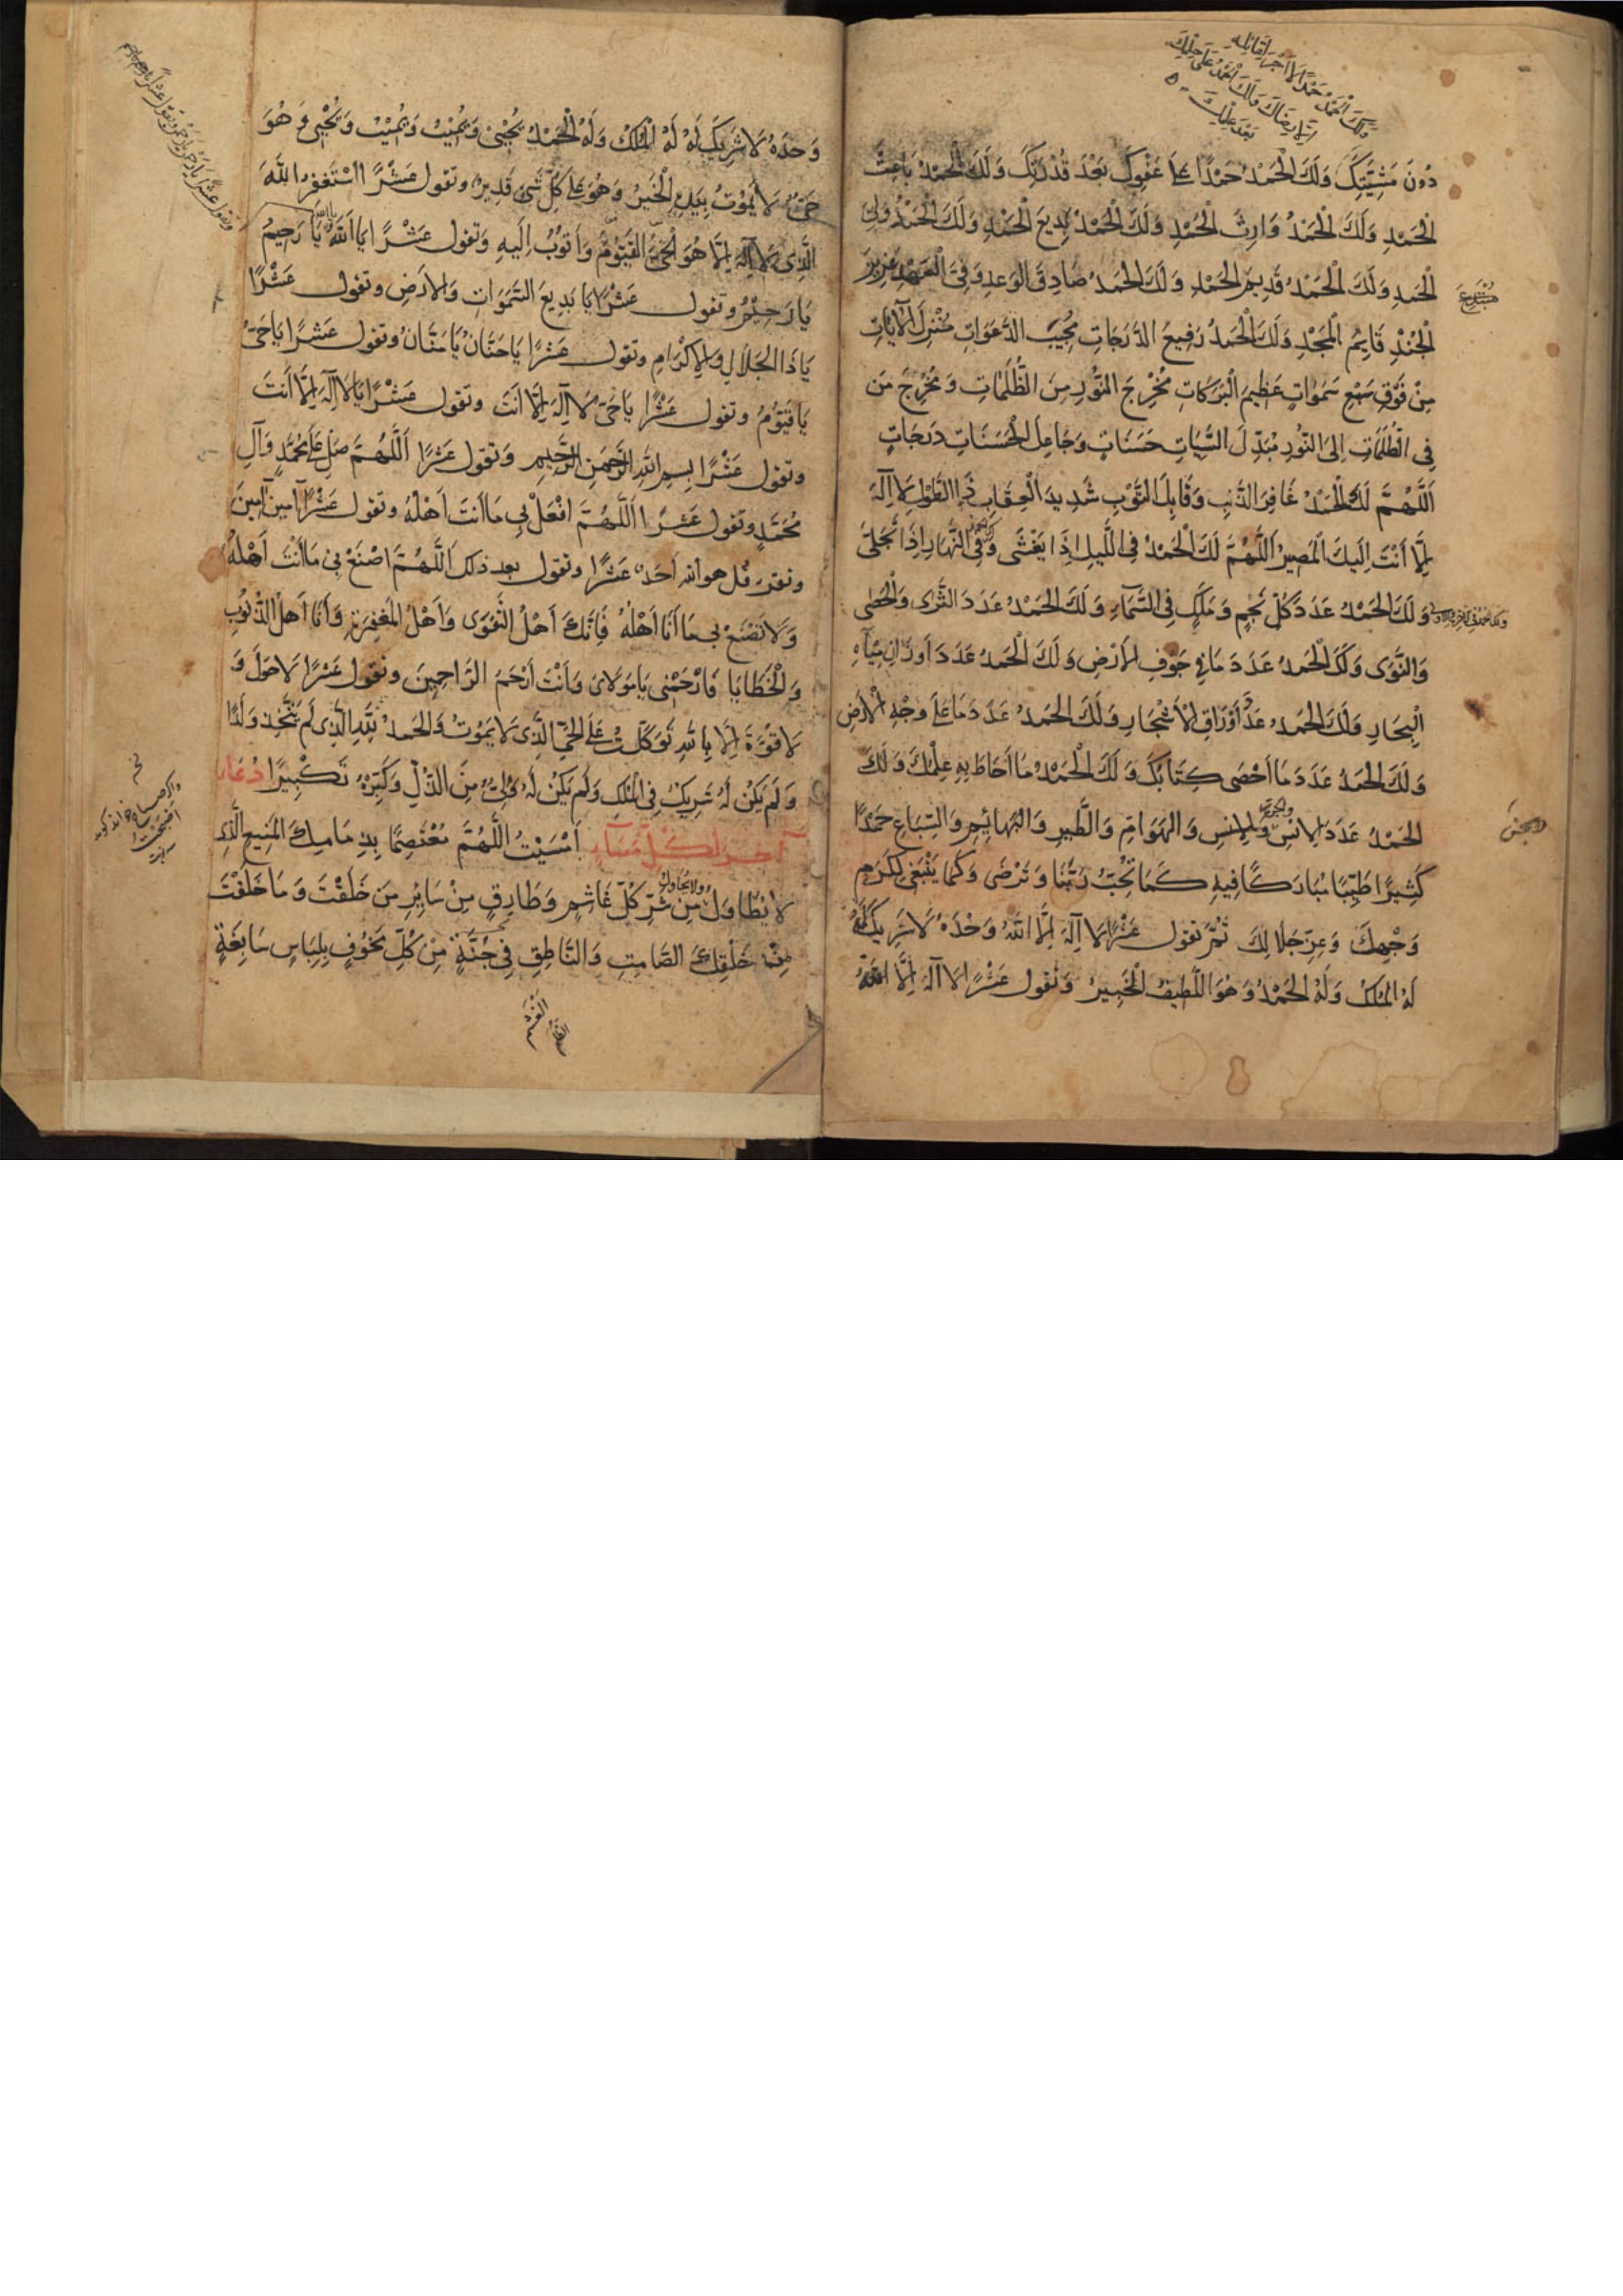 ولك الحمد حمدا لا اجر لقائله
الا رضاك ولك الحمد على حلمك
بعد علمك
دُونَ مَشِيَّتِكَ وَلَكَ الْحَمْدُ حَمْدًا عَلَى عَفْوِكَ بَعْدَ قُدْرَتِكَ وَلَكَ الْحَمْدُ بَاعِثَ
الْحَمْدِ وَلَكَ الْحَمْدُ وَارِثَ الْحَمْدِ وَلَكَ الْحَمْدُ بَدِيعَ الْحَمْدِ وَلَكَ الْحَمْدُ وَلِيَّ
مبتدع
الْحَمْدِ وَلَكَ الْحَمْدُ قَدِيمَ الْحَمْدِ وَلَكَ الْحَمْدُ صَادِقَ الْوَعْدِ وَفِيَّ الْعَهْدِ عَزِيزَ
الْجُنْدِ قَايِمُ الْمَجْدِ وَلَكَ الْحَمْدُ رَفِيعُ الدَّرَجَاتِ مُجِيبَ الدَّعَوَاتِ مُنْزِلَ الْآيَاتِ
مِنْ فَوْقِ سَبْعِ سَمَوَاتٍ عَظِيمَ الْبَرَكَاتِ مُخْرِجَ النُّورِ مِنَ الظُّلُمَاتِ وَمُخْرِجَ مَنْ
فِي الظُّلُمَاتِ اِلَى النُّورِ مُبَدِّلَ السَّيِّاتِ حَسَنَاتٍ وَجَاعِلَ الْحَسَنَاتِ دَرَجَاتٍ
اَللَّهُمَّ لَكَ الْحَمْدُ غَافِرَ الذَّنْبِ وَقَابِلَ التَّوْبِ شَدِيدَ الْعِقَابِ ذَا الطَّوْلِ لَا اِلَهَ
اِلَّا أَنْتَ اِلَيْكَ الْمَصِيرُ اَللَّهُمَّ لَكَ الْحَمْدُ فِي اللَّيْلِ اِذَا يَغْشَى وَلَكَ الْحَمْدُ فِي النَّهَارِ اِذَا تَجَلَّى
ولك الحمد في الاخرة والاولى
وَلَكَ الْحَمْدُ عَدَدَ كُلِّ نَجْمٍ وَمَلَكٍ فِي السَّمَاءِ وَلَكَ الْحَمْدُ عَدَدَ الثَّرَى وَالْحَصَى
وَالنَّوَى وَلَكَ الْحَمْدُ عَدَدَ مَا فِي جَوْفِ الْأَرْضِ وَلَكَ الْحَمْدُ عَدَدَ اَوْزَانِ مِيَاهِ
الْبِحَارِ وَلَكَ الْحَمْدُ عَدَدَ أَوْرَاقِ الْأَشْجَارِ وَلَكَ الْحَمْدُ عَدَدَ مَا عَلَى وَجْهِ الْأَرْضِ
وَلَكَ الْحَمْدُ عَدَدَ مَا أَحْصَى كِتَابُكَ وَلَكَ الْحَمْدُ مَا أَحَاطَ بِهِ عِلْمُكَ وَلَكَ
والجن
الْحَمْدُ عَدَدَ الْاِنْسِ وَالْهَوَامِّ وَالطَّيْرِ وَالْبَهَائِمِ وَالسِّبَاعِ حَمْدًا
كَثِيرًا طَيِّبًا مُبَارَكًا فِيهِ كَمَا تُحِبُّ رَبَّنَا وَتَرْضَى وَكَمَا يَنْبَغِي لِكَرَمِ
وَجْهِكَ وَعِزِّ جَلَالِكَ ثُمَّ تقول عَشْرًا لَا اِلَهَ اِلَّا اللَّهُ وَحْدَهُ لَا شَرِيكَ لَهُ
لَهُ الْمُلْكُ وَلَهُ الْحَمْدُ وَهُوَ اللَّطِيفُ الْخَبِيرُ وَتَقُول عَشْرًا لَا اِلَهَ اِلَّا اللَّهُ
وَحْدَهُ لَا شَرِيكَ لَهُ لَهُ الْمُلْكُ وَلَهُ الْحَمْدُ يُحْيِي وَيُمِيتُ وَيُمِيتُ وَيُحْيِي وَهُوَ
حَيٌّ لَا يَمُوتُ بِيَدِهِ الْخَيْرُ وَهُوَ عَلَى كُلِّ شَيْءٍ قَدِيرٌ وتقول عَشْرًا اَسْتَغْفِرُ اللَّهَ
الَّذِي لَا اِلَهَ اِلَّا هُوَ الْحَيُّ الْقَيُّومُ وَأَتُوبُ اِلَيْهِ وَتَقول عَشْرًا يَا أَللَّهُ يَا اللَّهُ يَا رَحِيمُ
يَا رَحِيمُ وتقول عَشْرًا يَا بَدِيعَ السَّمَوَاتِ وَالْأَرْضِ وتقول عَشْرًا
يَا ذَا الْجَلَالِ وَالْاِكْرَامِ وتقول عَشْرًا يَا حَنَّانُ يَا مَنَّانُ وتقول عَشْرًا يَا حَيُّ
يَا قَيُّومُ وتقول عَشْرًا يَا حَيُّ لَا اِلَهَ اِلَّا أَنْتَ وتقول عَشْرًا يَا لَا اِلَهَ اِلَّا أَنْتَ
وتقول عَشْرًا بِسْمِ اللَّهِ الرَّحْمَنِ الرَّحِيمِ وَتقول عَشْرًا اَللَّهُمَّ صَلِّ عَلَى مُحَمَّدٍ وَآلِ
مُحَمَّدٍ وتقول عَشْرًا اَللَّهُمَّ افْعَلْ بِي مَا أَنْتَ أَهْلُهُ وتقول عَشْرًا آمِينَ آمِينَ
وتقرء قل هو الله اَحَدٌ عَشْرًا وتقول بعد ذلك اَللَّهُمَّ اصْنَعْ بِي مَا أَنْتَ أَهْلُهُ
وَلَا تَصْنَعْ بِي مَا أَنَا أَهْلُهُ فَاِنَّكَ أَهْلُ التَّقْوَى وَأَهْلُ الْمَغْفِرَةِ وَأَنَا أَهْلُ الذُّنُوبِ
وَالْخَطَايَا فَارْحَمْنِي يَا مَوْلَايَ وَأَنْتَ أَرْحَمُ الرَّاحِمِينَ وتقول عَشْرًا لَا حَوْلَ وَ
لَا قُوَّةَ اِلَّا بِاللَّهِ تَوَكَّلْتُ عَلَى الْحَيِّ الَّذِي لَا يَمُوتُ وَالْحَمْدُ لِلَّهِ الَّذِي لَمْ يَتَّخِذْ وَلَدًا
وَلَمْ يَكُنْ لَهُ شَرِيكٌ فِي الْمُلْكِ وَلَمْ يَكُنْ لَهُ وَلِيٌّ مِنَ الذُّلِّ وَكَبِّرْهُ تَكْبِيرًا دُعَاء
آخر لكل مساء أَمْسَيْتُ اللَّهُمَّ مُعْتَصِمًا بِذِمَامِكَ الْمَنِيعِ الَّذِي
لَا يُطَاوَلُ وَلَا يُحَاوَلُ مِنْ شَرِّ كُلِّ غَاشِمٍ وَطَارِقٍ مِنْ سَايِرِ مَنْ خَلَقْتَ وَمَا خَلَقْتَ
مِنْ خَلْقِكَ الصَّامِتِ وَالنَّاطِقِ فِي جُنَّةٍ مِنْ كُلِّ مَخُوفٍ بِلِبَاسٍ سَابِغَةٍ
الغشم
الظلم